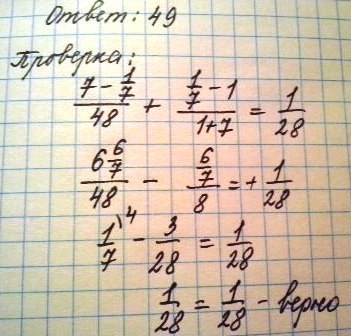 Ответ: 49
Проверка:
(7 - 1/7)/48 + (1/7 - 1)/(1+7) = 1/28
(6 6/7)/48 - (6/7)/8 = + 1/28
1/7 \4 - 3/28 = 1/28
1/28 = 1/28 - верно